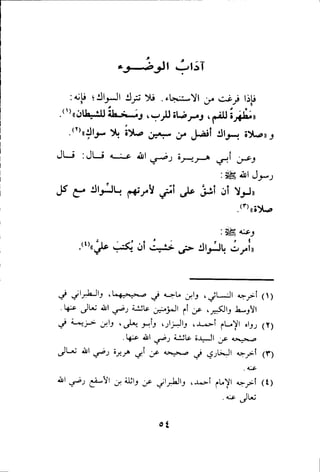 آدابُ الوُضُوء
فإذا فرغت من الاستنجاء. فلا تترك السواك ؛ فإنه :
«مَطْهَرَةٌ للفم ، ومرضاة للرب، ومسخطة للشيطان»(١).
و «صلاة بسواك أفضل من سبعين صلاة بلا سواك»(٢).
وعن أبي هريرة رضي الله عنه قال: قال
رسول الله ﷺ :
«لولا أن أشق على أمتي لأمرتهم بالسواك مع كل
صلاة»(٣).
وعنه ﷺ :
«أمرت بالسواك حتى خشيت أن يكتب عليّ»(٤).
(١) أخرجه النسائي، وابن حبان في صحيحه، والطبراني في
الأوسط والكبير، عن أم المؤمنين عائشة رضي الله تعالى عنها.
(٢) رواه الإمام أحمد، والبزار، وأبو يعلى، وابن خزيمة في
صحيحه عن السيدة عائشة رضي الله عنها.
(٣) أخرجه البخاري في صحيحه عن أبي هريرة رضي الله تعالى
عنه.
(٤) أخرجه الإمام أحمد، والطبراني عن واثلة بن الأسقع رضي الله
تعالى عنه.
٥٤